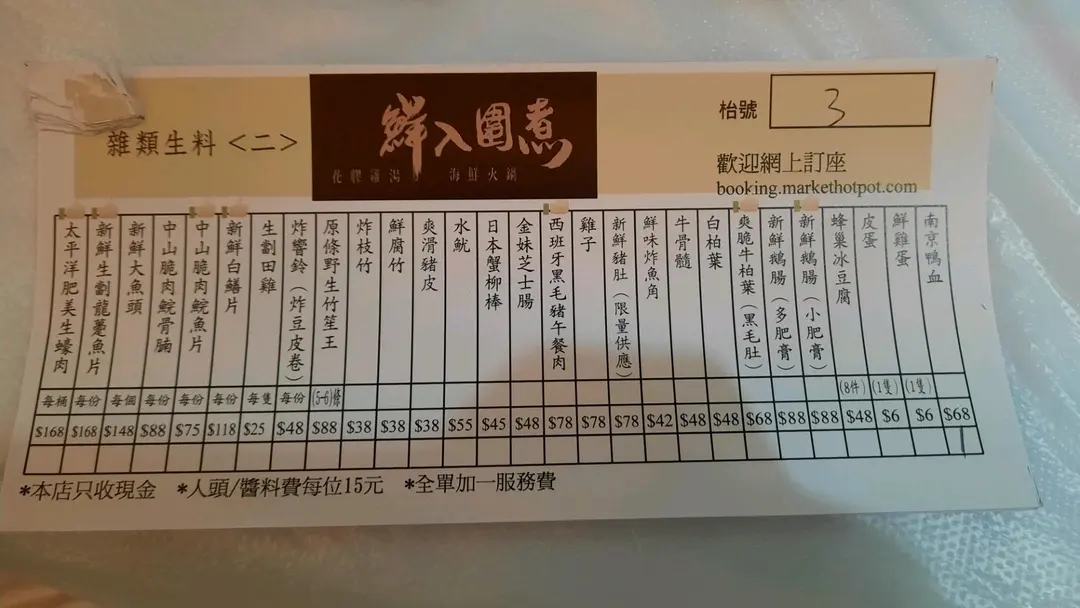 雜類生料<二>
鮮入圍煮
花膠雞湯 海鮮火鍋
枱號 3
歡迎網上訂座
booking.markethotpot.com
南京鴨血 $68 1
鮮雞蛋 (1隻) $6
皮蛋 (1隻) $6
蜂巢冰豆腐 (8件) $48
新鮮鵝腸（小肥膏） $88
新鮮鵝腸（多肥膏） $88
爽脆牛柏葉（黑毛肚） $68
白柏葉 $48
牛骨髓 $48
鮮味炸魚角 $42
新鮮豬肚（限量供應） $78
雞子 $78
西班牙黑毛豬午餐肉 $78
金妹芝士腸 $48
日本蟹柳棒 $45
水魷 $55
爽滑豬皮 $38
鮮腐竹 $38
炸枝竹 $38
原條野生竹笙王 (5-6)條 $88
炸響鈴（炸豆皮卷） 每份 $48
生劏田雞 每隻 $25
新鮮白鱔片 每份 $118
中山脆肉鯇魚片 每份 $75
中山脆肉鯇骨腩 每份 $88
新鮮大魚頭 每個 $148
新鮮生劏龍躉魚片 每份 $168
太平洋肥美生蠔肉 每桶 $168
*本店只收現金 *人頭/醬料費每位15元 *全單加一服務費